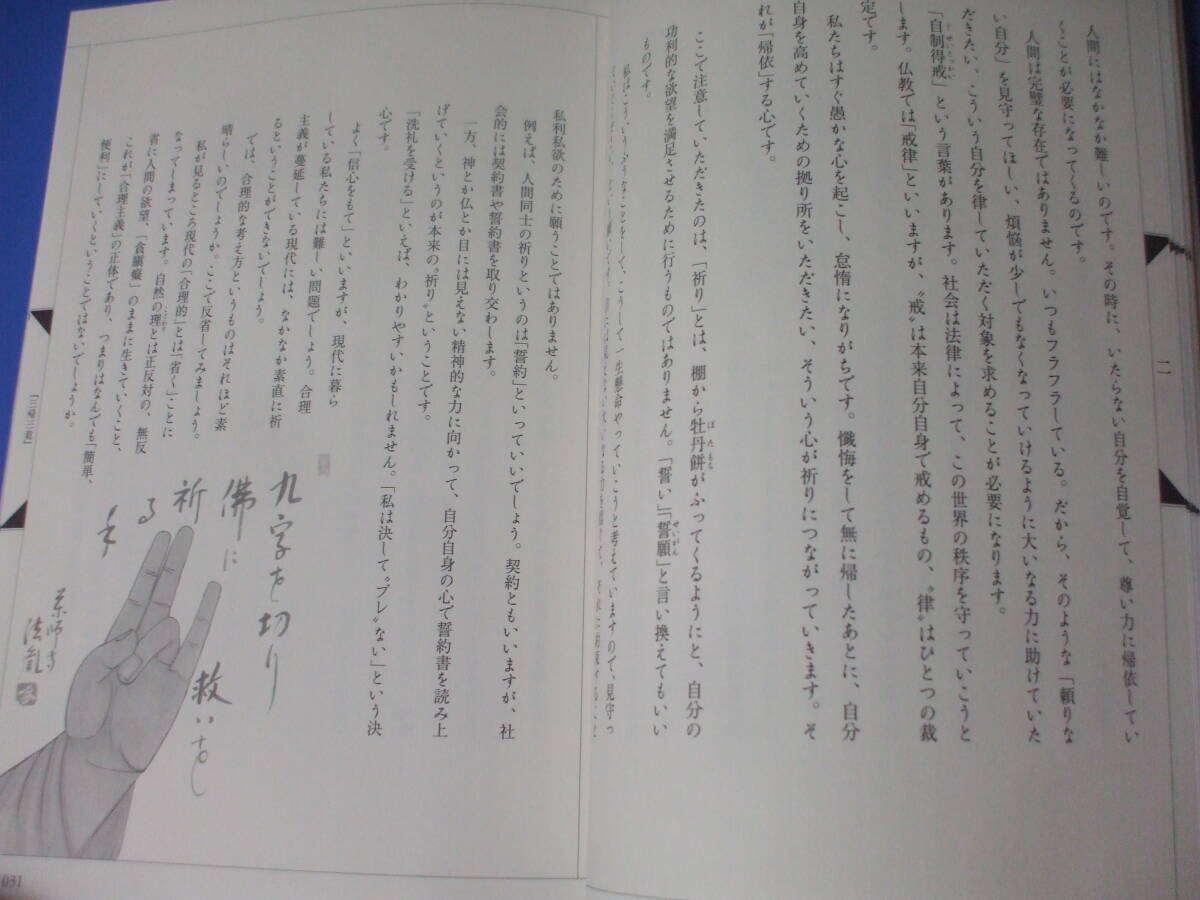 二
人間にはなかなか難しいのです。その時に、いたらない自分を自覚して、尊い力に帰依してい
くことが必要になってくるのです。
人間は完璧な存在ではありません。いつもフラフラしている。だから、そのような「頼りな
い自分」を見守ってほしい、煩悩が少しでもなくなっていけるように大いなる力に助けていた
だきたい、こういう自分を律していただく対象を求めることが必要になります。
「自制得戒」という言葉があります。社会は法律によって、この世界の秩序を守っていこうと
します。仏教では「戒律」といいますが、〝戒〟は本来自分自身で戒めるもの、〝律〟はひとつの裁
定です。
私たちはすぐ愚かな心を起こし、怠惰になりがちです。懺悔をして無に帰したあとに、自分
自身を高めていくための拠り所をいただきたい、そういう心が祈りにつながっていきます。そ
れが「帰依」する心です。
ここで注意していただきたのは、「祈り」とは、棚から牡丹餅がふってくるようにと、自分の
功利的な欲望を満足させるために行うものではありません。「誓い」「誓願」と言い換えてもいい
ものです。
私はこういうふうなことをして、こうして一生懸命やっていこうと考えていますので、見守っ
私利私欲のために願うことではありません。
例えば、人間同士の祈りというのは「誓約」といっていいでしょう。契約ともいいますが、社
会的には契約書や誓約書を取り交わします。
一方、神とか仏とか目には見えない精神的な力に向かって、自分自身の心で誓約書を読み上
げていくというのが本来の〝祈り〟ということです。
「洗礼を受ける」といえば、わかりやすいかもしれません。「私は決して〝ブレ〟ない」という決
心です。
よく「信心をもて」といいますが、現代に暮ら
している私たちには難しい問題でしょう。合理
主義が蔓延している現代には、なかなか素直に祈
るということができないでしょう。
では、合理的な考え方というものはそれほど素
晴らしいのでしょうか。ここで反省してみましょう。
私が見るところ現代の「合理的」とは「省く」ことに
なってしまっています。自然の理とは正反対の、無反
省に人間の欲望、「貪瞋癡」のままに生きていくこと、
これが「合理主義」の正体であり、つまりはなんでも「簡単、
便利」にしていくということではないでしょうか。
「三帰三竟」
九字を切り
佛に
救いを
祈
る
手
薬師寺
031